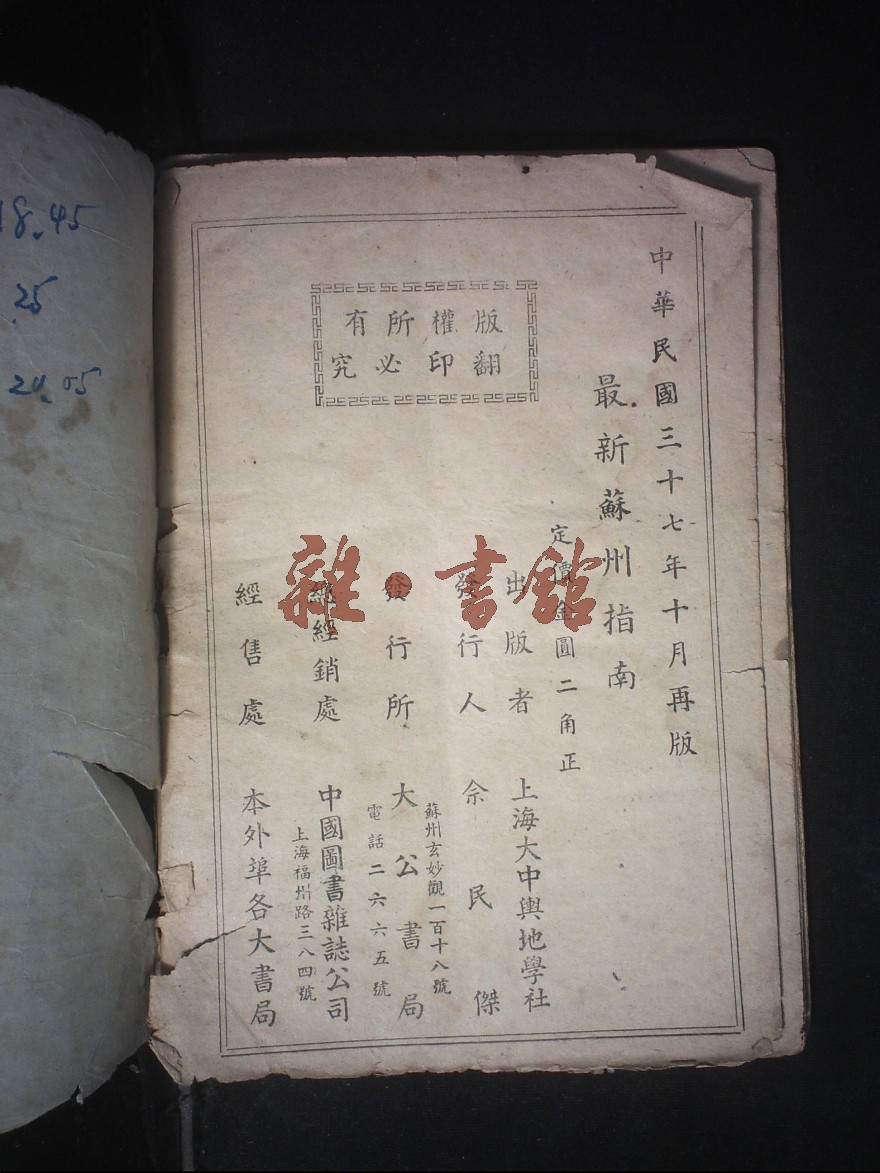 18.45
.25
20.05
中華民國三十七年十月再版
最新蘇州指南
定價金圓二角正
出版者 上海大中輿地學社
發行人 佘民傑
發行所 大公書局
蘇州玄妙觀一百十八號
電話二六六五號
總經銷處 中國圖書雜誌公司
上海福州路三八四號
經售處 本外埠各大書局
版權所有
翻印必究
雜·書館